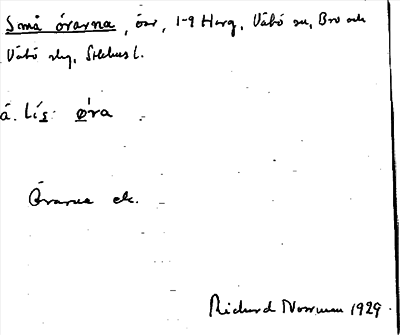 Små örarna, öar, 1-9 Herg, Väbö sn, Bro och
Väbö slg, Sthlms l.
å. lís øra
Örarna ek.
Richard Norrman 1929